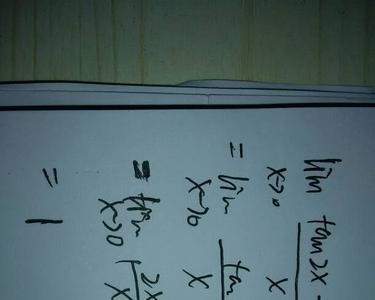 lim x→0 tan2x / x
= lim x→0 tan / x
= lim x→0 2x / x
= 1